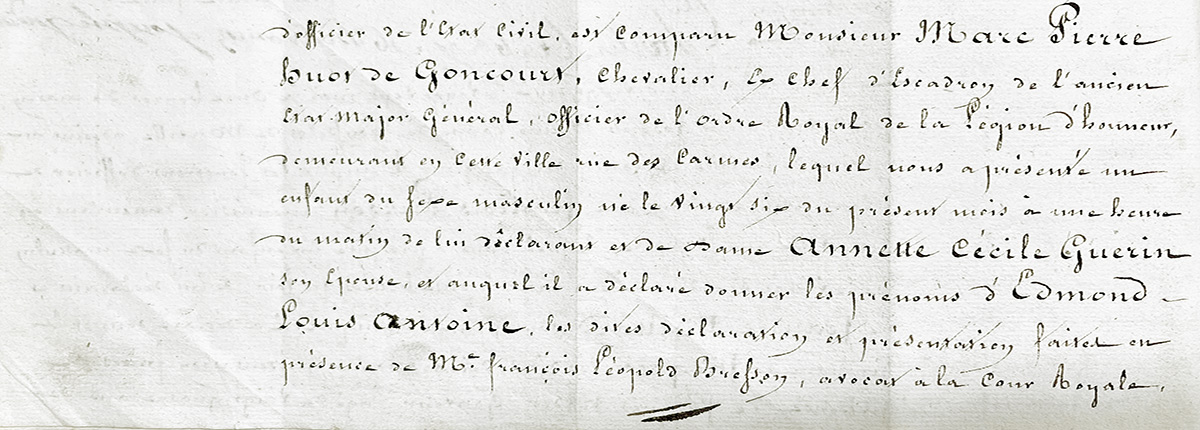 d'officier de l'Etat Civil, est comparu Monsieur Marc Pierre
huot de Goncourt, Chevalier, Ex Chef d'Escadron de l'ancien
Etat-Major Général, officier de l'ordre Royal de la Légion d'honneur,
demeurant en cette ville rue des Carmes, lequel nous a présenté un
enfant du sexe masculin né le vingt six du présent mois à une heure
du matin de lui déclarant et de Dame Annette Cécile Guérin
son Epouse, et auquel il a déclaré donner les prénoms d'Edmond-
Louis Antoine, les dites déclaration et présentation faites en
présence de Mr. françois Léopold Bresson, avocat à la Cour Royale,